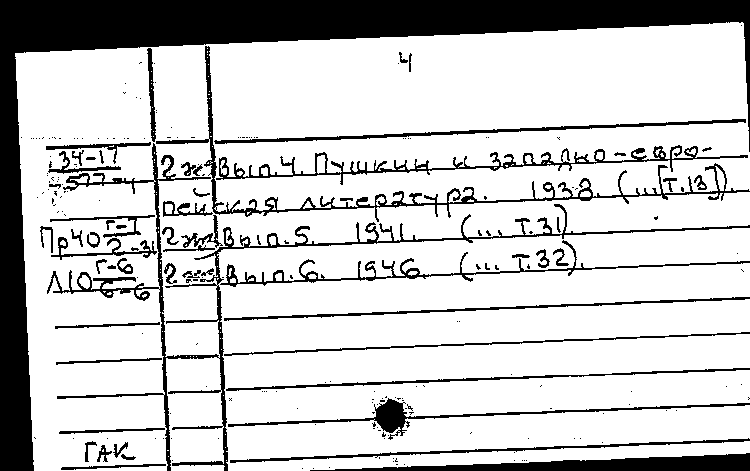 4
34-17 2 экз Вып.4. Пушкин и западно-евро-
577-4 пейская литература. 1938. (...[Т.13]).
Пр40 Г-1/2-31 2 экз Вып.5. 1941. (... Т.31)
Л10 Г-6/6-6 2 экз Вып.6. 1946. (... Т.32).
ГАК